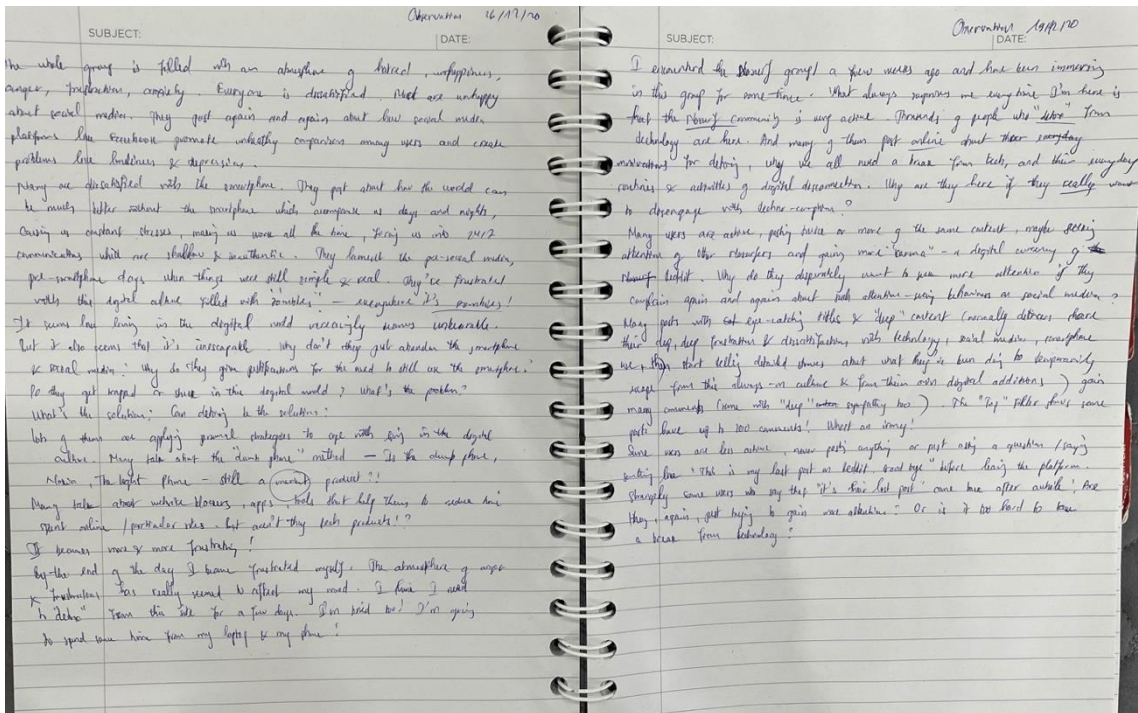 Observation 16/12/20
SUBJECT:
DATE:
The whole group is filled with an atmosphere of hatred, unhappiness,
anger, frustration, complexity. Everyone is dissatisfied. Most are unhappy
about social media. They post again and again about how social media
platforms like Facebook promote unhealthy comparison among users and create
problems like loneliness & depression.
Many are dissatisfied with the smartphone. They post about how the world can
be much better without the smartphone which accompanies us days and nights,
causing us constant stresses, making us work all the time, forcing us into 24/7
communications which are shallow & inauthentic. They lament the pre-social media,
pre-smartphone days when things were still simple & real. They're frustrated
with the digital culture filled with "zombies" – everywhere it's zombies!
It seems like living in the digital world increasingly becomes unbearable.
But it also seems that it's inescapable. Why don't they just abandon the smartphone
& social media? Why do they give justifications for the need to still use the smartphone?
Do they get trapped or stuck in this digital world? What's the problem?
What's the solution? Can detoxing be the solution?
Lots of them are applying personal strategies to cope with living in the digital
culture. Many talk about the "dumb phone" method – Is the dumb phone,
Nokia, The Light Phone – still a market product?!
Many talk about website blockers, apps, tools that help them to reduce time
spent online / particular sites. But aren't they tech products!?
It becomes more & more frustrating!
By the end of the day I became frustrated myself. The atmosphere of anger
& frustrations has really seemed to affect my mood. I think I need
to "detox" from this site for a few days. I'm tired too! I'm going
to spend some time from my laptop & my phone!
Observation 19/12/20
SUBJECT:
DATE:
I encountered the NoSurf group a few weeks ago and have been immersing
in this group for some time. What always surprises me every time I'm here is
that the NoSurf community is very active. Thousands of people who "detox" from
technology are here. And many of them post online about their everyday
motivations for detoxing, why we all need a break from tech, and their everyday
routines & activities of digital disconnection. Why are they here if they really want
to disengage with techno-
Many users are active, posting twice or more of the same content, maybe seeking
attention of other nosurfers and gaining more "karma" – a digital currency of
Reddit. Why do they desperately want to gain more attention if they
complain again and again about such attention-seeking behaviours on social media?
Many posts with eye-catching titles & "deep" content (normally detoxers share
their deep, deep frustration & dissatisfaction with technology, social media, smartphone
use, then start telling detailed stories about what they've been doing to temporarily
escape from this always-on culture & from their own digital addictions) gain
many comments (some with "deep" sympathy too). The "Top" filter shows some
posts have up to 100 comments! What an irony!
Some users are less active, never posts anything or just asking a question / saying
something like "This is my last post on Reddit. Good bye" before leaving the platform.
Strangely some users who say that "it's their last post" come back after awhile! Are
they, again, just trying to gain more attention? Or is it too hard to take
a break from technology?